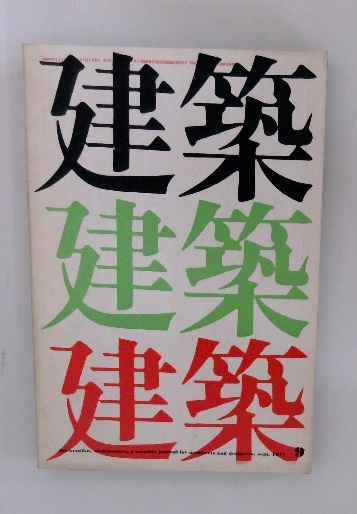 建築
建築
建築
the kentiku, architecture, a monthly journal for architects and designers, sept. 1971 9